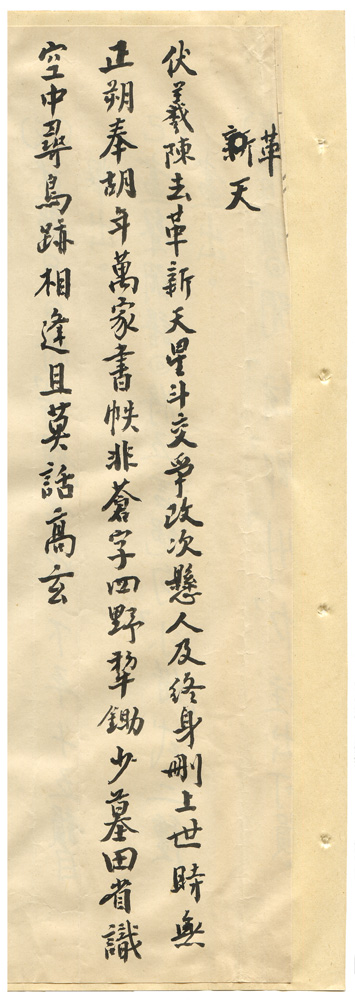 革
新天
伏羲陳去革新天星斗交爭改次懸人及終身刪上世時無
正朔奉胡年萬家書帙非蒼字四野犂鋤少墓田省識
空中尋鳥跡相逢且莫話高玄